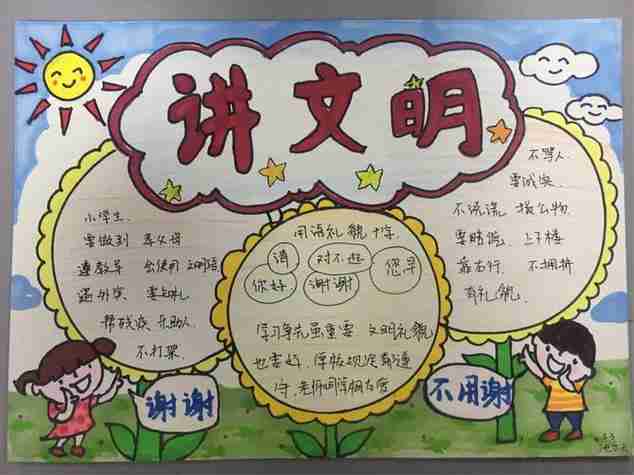 讲文明
小学生.
要做到 孝父母
遵教导 会使用 文明语.
遇外宾 要敬礼
帮残疾 乐助人.
不打架.
用语礼貌 十字.
请
对不起
您早
你好
谢谢
学习争先虽重要 文明礼貌
也要好. 学校规定都遵
守.
不骂人
要诚实.
不说谎. 损公物.
要赔偿. 上下楼
靠右行. 不拥挤
有礼貌.
谢谢
不用谢